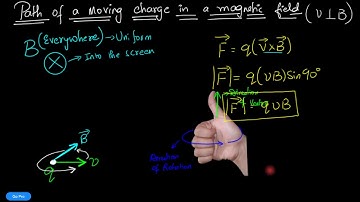 Path of a moving charge in a magnetic field (v⊥B)
B (Everywhere) → Uniform
→ Into the screen
F⃗ = q(v⃗×B⃗)
|F⃗| = q(vB)Sin90°
Direction of
|F⃗| = qvB
Direction
of Rotation
B⃗
q
v
Go Pro